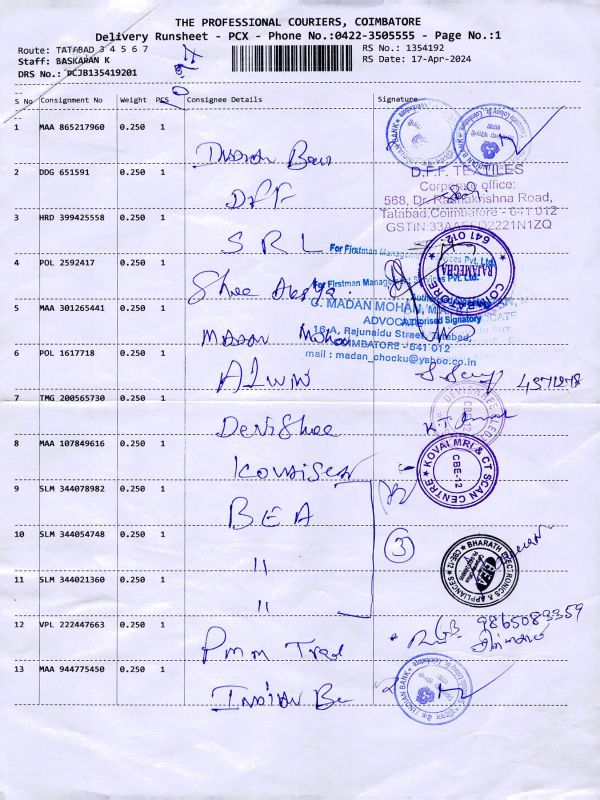 THE PROFESSIONAL COURIERS, COIMBATORE
Delivery Runsheet - PCX - Phone No.:0422-3505555 - Page No.:1
Route: TATABAD 3 4 5 6 7 RS No.: 1354192
Staff: BASKARAN K RS Date: 17-Apr-2024
DRS No.: PCJB135419201
S No Consignment No Weight PCS Consignee Details Signature
1 MAA 865217960 0.250 1
Indian Bank
2 DDG 651591 0.250 1
DFF
D.F.F. TEXTILES
Corporate office:
568, Dr. Radhakrishna Road,
Tatabad,Coimbatore - 641 012
3 HRD 399425558 0.250 1
SRL
For Firstman Management Services Pvt. Ltd.
4 POL 2592417 0.250 1
Shree
For Firstman Management Services Pvt. Ltd.
Authorised Signatory
RAJAMEGHA
COIMBATORE 641 012.
5 MAA 301265441 0.250 1
Madan Mohan
G. MADAN MOHAN,
ADVOCATE
16-A, Rajunaidu Street, Tatabad,
COIMBATORE - 641 012
mail : madan_chocku@yahoo.co.in
6 POL 1617718 0.250 1
Alwin
7 TMG 200565730 0.250 1
Devi Shree
8 MAA 107849616 0.250 1
Kovai Scan
KOVAI MRI & CT SCAN CENTRE
CBE-12
9 SLM 344078982 0.250 1
BEA
10 SLM 344054748 0.250 1
"
3
BHARATH ELECTRONICS & APPLIANCES
CBE-12
BEA
11 SLM 344021360 0.250 1
"
12 VPL 222447663 0.250 1
9865083359
Pmm Tred
13 MAA 944775450 0.250 1
Indian Ba
INDIAN BANK